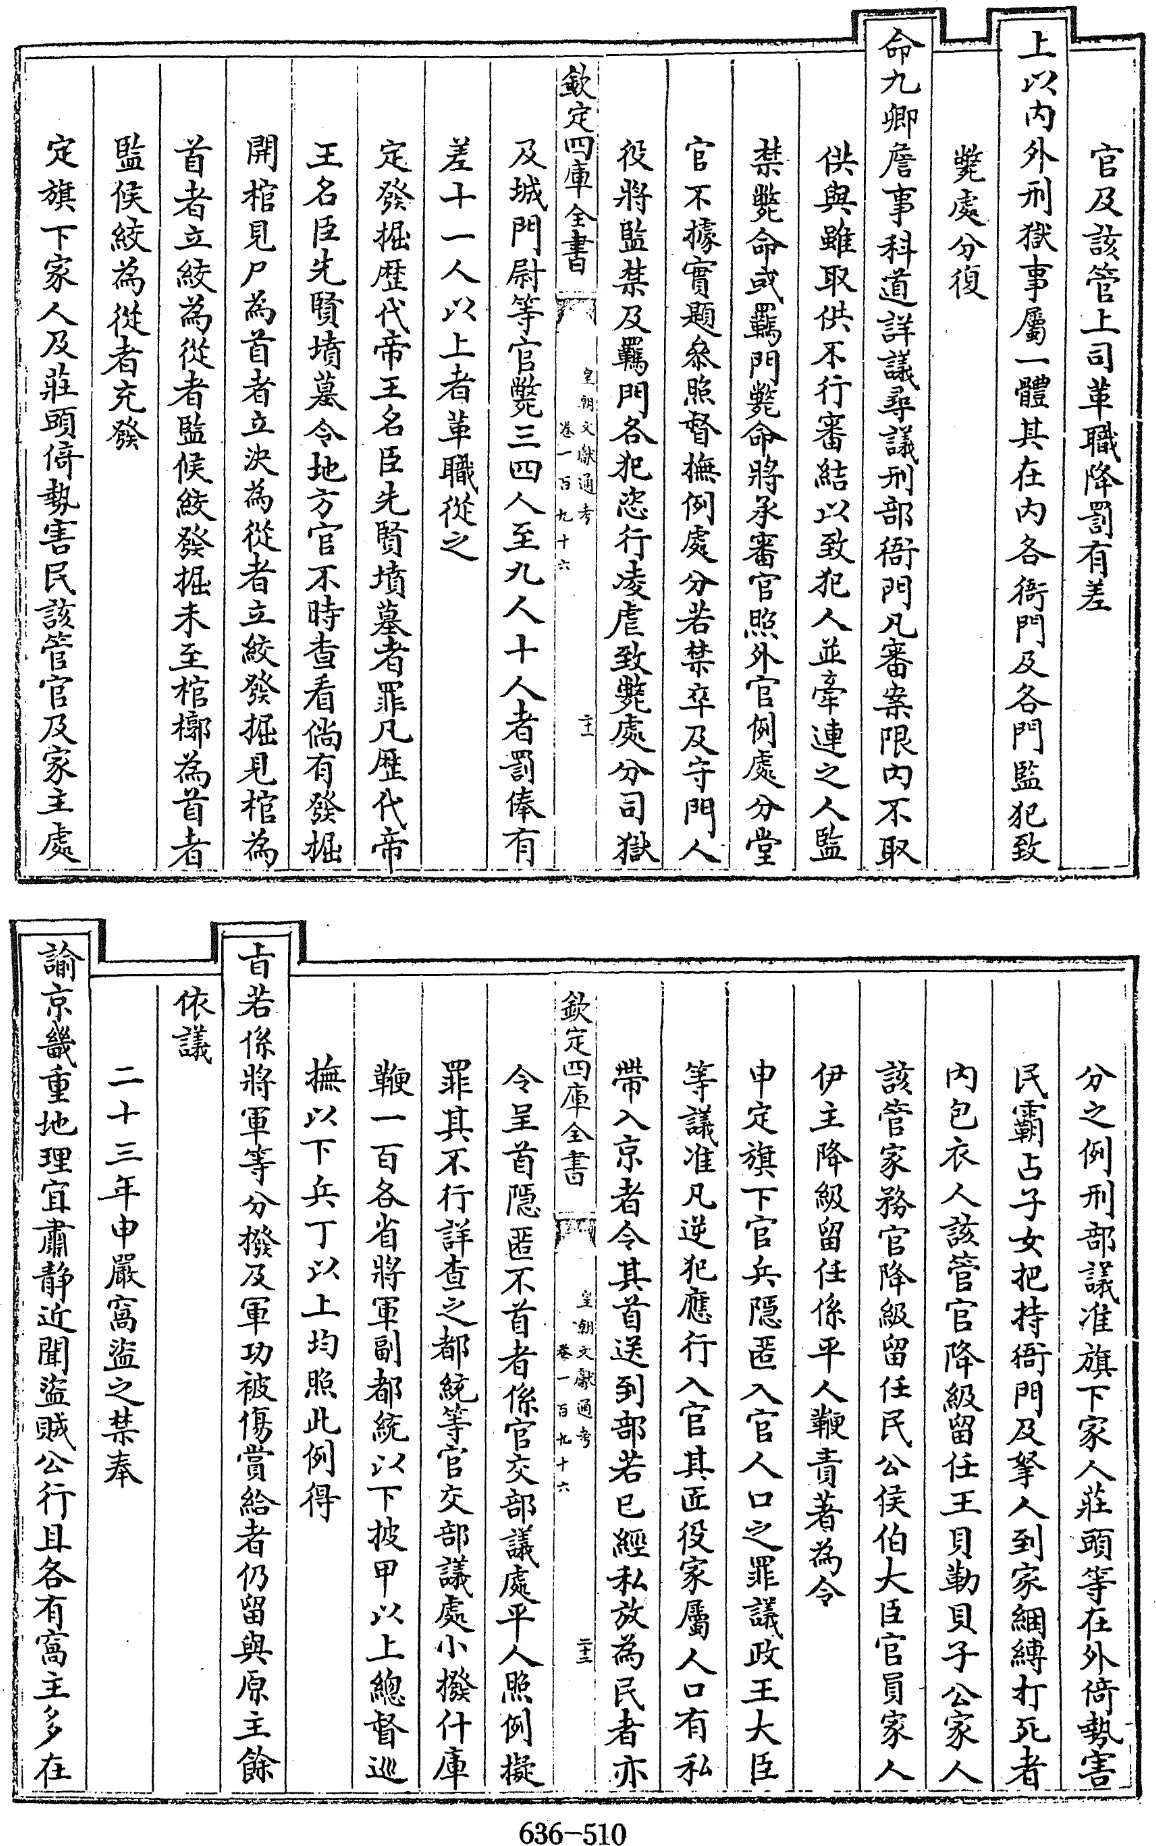 官及該管上司革職降罰有差
上以内外刑獄事屬一體其在内各衙門及各門監犯致
斃處分復
命九卿詹事科道詳議尋議刑部衙門凡審案限内不取
供與雖取供不行審結以致犯人並牽連之人監
禁斃命或羈門斃命將承審官照外官例處分堂
官不據實題叅照督撫例處分若禁卒及守門人
役將監禁及羈門各犯恣行凌虐致斃處分司獄
欽定四庫全書
皇朝文獻通考
卷一百九十六
二十二
及城門尉等官斃三四人至九人十人者罰俸有
差十一人以上者革職從之
定發掘歴代帝王名臣先賢墳墓者罪凡歴代帝
王名臣先賢墳墓令地方官不時查看倘有發掘
開棺見尸為首者立決為從者立絞發掘見棺為
首者立絞為從者監候絞發掘未至棺槨為首者
監候絞為從者充發
定旗下家人及莊頭倚勢害民該管官及家主處
分之例刑部議准旗下家人莊頭等在外倚勢害
民霸占子女把持衙門及拏人到家綑縛打死者
内包衣人該管官降級留任王貝勒貝子公家人
該管家務官降級留任民公侯伯大臣官員家人
伊主降級留任係平人鞭責著為令
申定旗下官兵隠匿入官人口之罪議政王大臣
等議准凡逆犯應行入官其匠役家屬人口有私
帶入京者令其首送到部若已經私放為民者亦
欽定四庫全書
皇朝文獻通考
卷一百九十六
二十三
令呈首隠匿不首者係官交部議處平人照例擬
罪其不行詳查之都統等官交部議處小撥什庫
鞭一百各省將軍副都統以下披甲以上總督巡
撫以下兵丁以上均照此例得
㫖若係將軍等分撥及軍功被傷賞給者仍留與原主餘
依議
二十三年申嚴窩盜之禁奉
諭京畿重地理宜肅静近聞盜賊公行且各有窩主多在
636-510